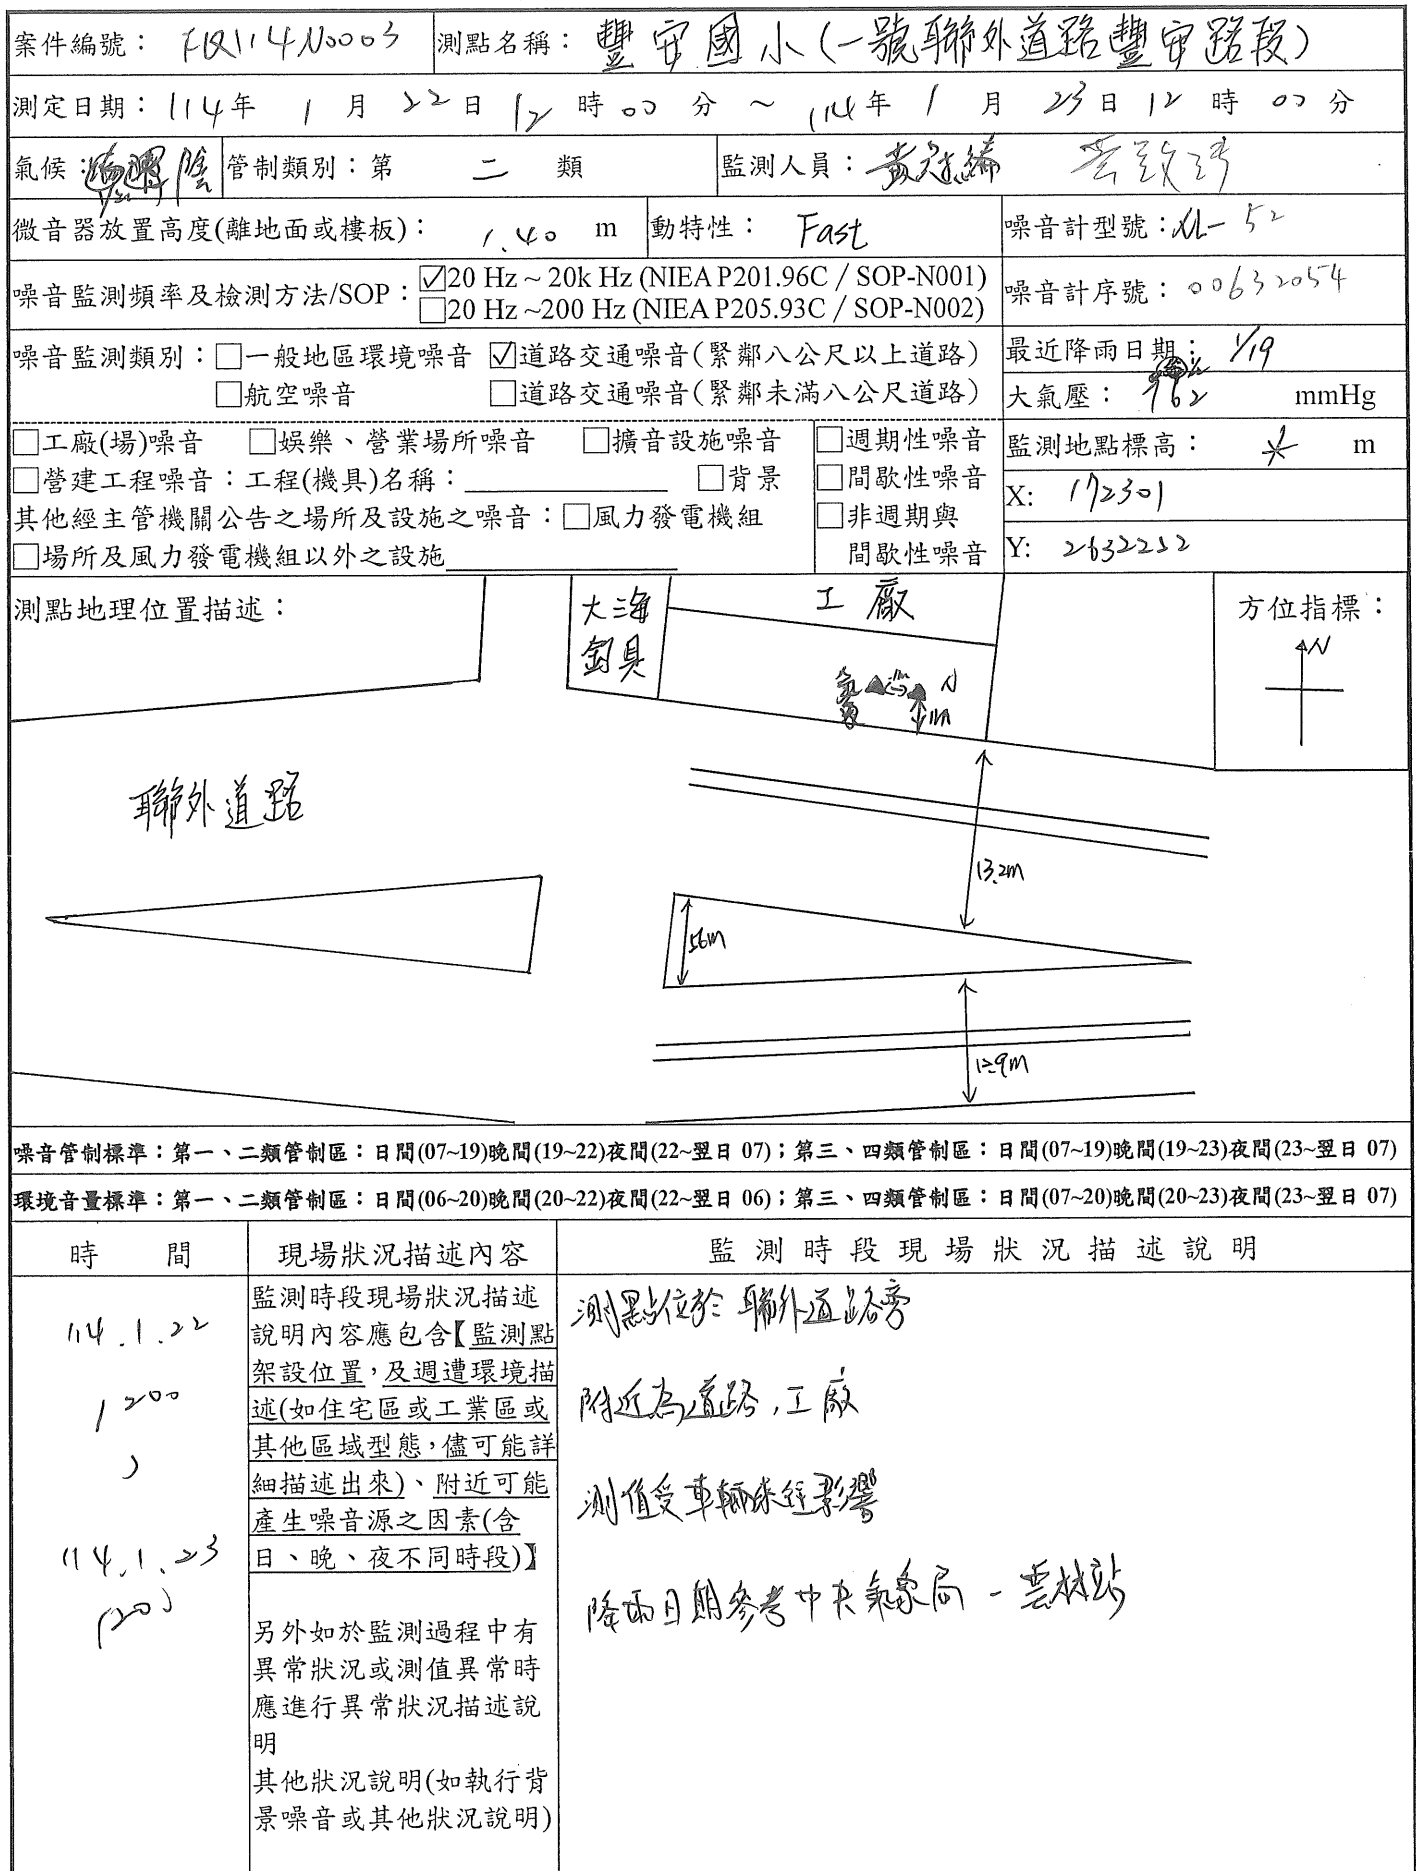 案件編號： FQ114N0003 測點名稱： 豐安國小(一號聯外道路豐安路段)
測定日期：114年 1 月 22日 12 時 00 分 ～ 114年 1 月 23日 12 時 00 分
氣候： 陰 管制類別：第 二 類 監測人員：
微音器放置高度(離地面或樓板)： 1.40 m 動特性： Fast 噪音計型號：NL-52
噪音監測頻率及檢測方法/SOP：☑20 Hz ~ 20k Hz (NIEA P201.96C / SOP-N001)
□20 Hz ~200 Hz (NIEA P205.93C / SOP-N002)
噪音計序號：00632054
噪音監測類別：□一般地區環境噪音 ☑道路交通噪音(緊鄰八公尺以上道路)
□航空噪音 □道路交通噪音(緊鄰未滿八公尺道路)
最近降雨日期： 1/19
大氣壓： 762 mmHg
□工廠(場)噪音 □娛樂、營業場所噪音 □擴音設施噪音
□營建工程噪音：工程(機具)名稱： □背景
其他經主管機關公告之場所及設施之噪音：□風力發電機組
□場所及風力發電機組以外之設施
□週期性噪音
□間歇性噪音
□非週期與
間歇性噪音
監測地點標高： m
X: 172301
Y: 2632252
測點地理位置描述：
大海
釣具
工廠
方位指標：
N
1m
N
1m
聯外道路
13.2m
5.6m
12.9m
噪音管制標準：第一、二類管制區：日間(07~19)晚間(19~22)夜間(22~翌日 07)；第三、四類管制區：日間(07~19)晚間(19~23)夜間(23~翌日 07)
環境音量標準：第一、二類管制區：日間(06~20)晚間(20~22)夜間(22~翌日 06)；第三、四類管制區：日間(07~20)晚間(20~23)夜間(23~翌日 07)
時 間 現場狀況描述內容 監測時段現場狀況描述說明
114.1.22
1200
~
114.1.23
1200
監測時段現場狀況描述
說明內容應包含【監測點
架設位置，及週遭環境描
述(如住宅區或工業區或
其他區域型態，儘可能詳
細描述出來)、附近可能
產生噪音源之因素(含
日、晚、夜不同時段)】
另外如於監測過程中有
異常狀況或測值異常時
應進行異常狀況描述說
明
其他狀況說明(如執行背
景噪音或其他狀況說明)
測點位於聯外道路旁
附近為道路,工廠
測值受車輛來往影響
降雨日期參考中央氣象局-雲林站